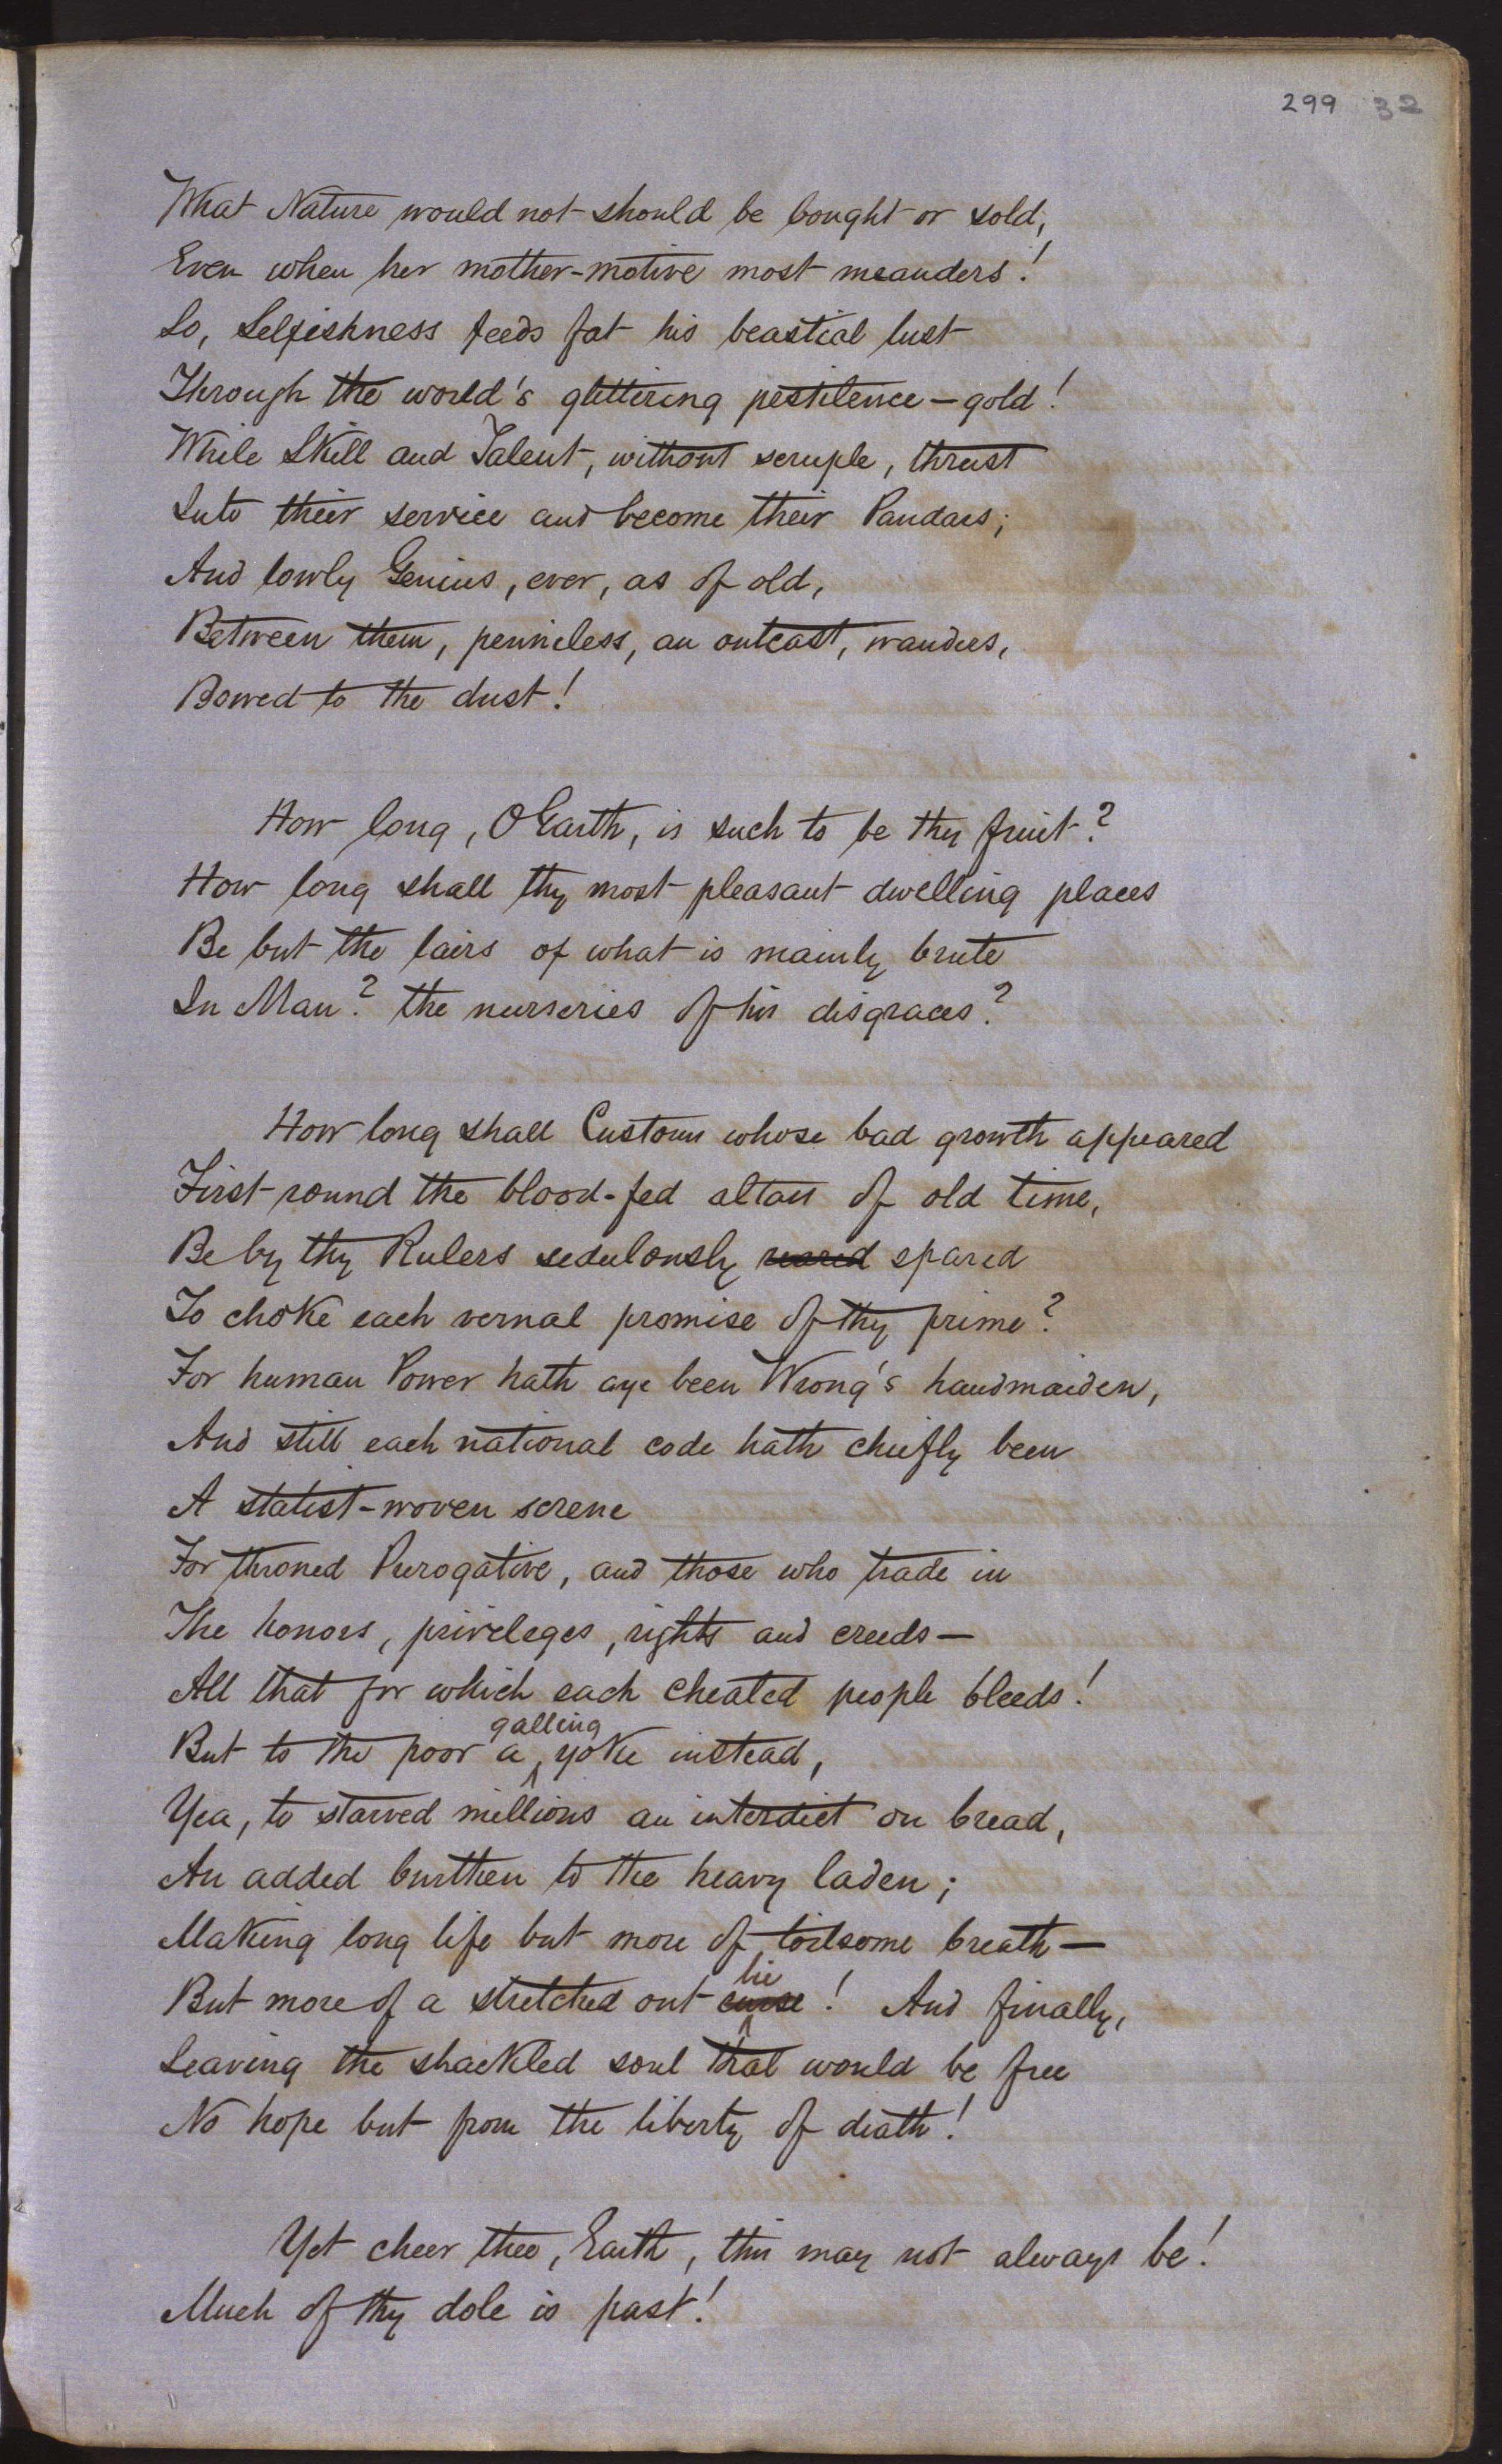 299 32
What Nature would not should be bought or sold,
Even when her mother-motive most meanders!
So, Selfishness feeds fat his beastial lust
Through the world's glittering pestilence—gold!
While Skill and Talent, without scruple, thrust
Into their service and become their Pandars;
And lowly Genius, ever, as of old,
Between them, penniless, an outcast, wanders,
Bowed to the dust!
How long, O Earth, is such to be thy fruit?
How long shall thy most pleasant dwelling places
Be but the lairs of what is mainly brute
In Man? the nurseries of his disgraces?
How long shall Custom whose bad growth appeared
First round the blood-fed altars of old time,
Be by thy Rulers sedulously reared spared
To choke each vernal promise of thy prime?
For human Power hath aye been Wrong's handmaiden,
And still each national code hath chiefly been
A statist-woven screne
For throned Prerogative, and those who trade in
The honors, privileges, rights and creeds—
All that for which each cheated people bleeds!
galling
But to the poor a yoke instead,
Yea, to starved millions an interdict on bread,
An added burthen to the heavy laden;
Making long life but more of toilsome breath—
lie
But more of a stretched out curse! And finally,
Leaving the shackled soul that would be free
No hope but from the liberty of death!
Yet cheer thee, Earth, this may not always be!
Much of thy dole is past!